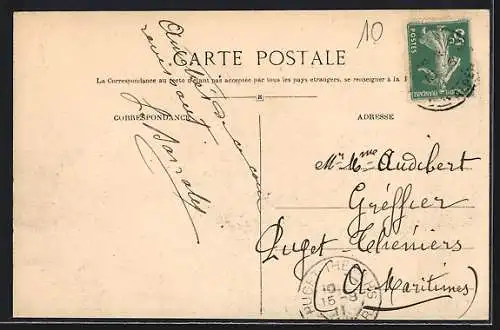 10
CARTE POSTALE
La Correspondance au recto n'étant pas acceptée par tous les pays étrangers, se renseigner à la
CORRESPONDANCE
ADRESSE
Mr Mme Audibert
Greffier
Puget-Théniers
(A-Maritimes)
POSTES
PUGET-THENIERS
15-8
11